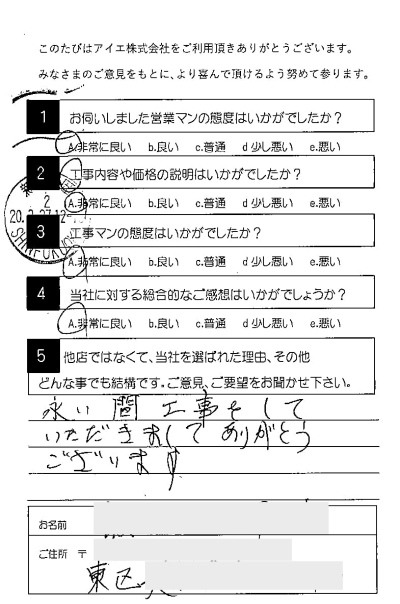 このたびはアイエ株式会社をご利用頂きありがとうございます。
みなさまのご意見をもとに、より喜んで頂けるよう努めて参ります。
1 お伺いしました営業マンの態度はいかがでしたか？
A.非常に良い b.良い c.普通 d 少し悪い e.悪い
2 工事内容や価格の説明はいかがでしたか？
A.非常に良い b.良い c.普通 d 少し悪い e.悪い
3 工事マンの態度はいかがでしたか？
A.非常に良い b.良い c.普通 d 少し悪い e.悪い
4 当社に対する総合的なご感想はいかがでしょうか？
A.非常に良い b.良い c.普通 d 少し悪い e.悪い
5 他店ではなくて、当社を選ばれた理由、その他
どんな事でも結構です。ご意見、ご要望をお聞かせ下さい。
永い間工事をして
いただきましてありがとう
ございます
お名前
ご住所 〒
東区